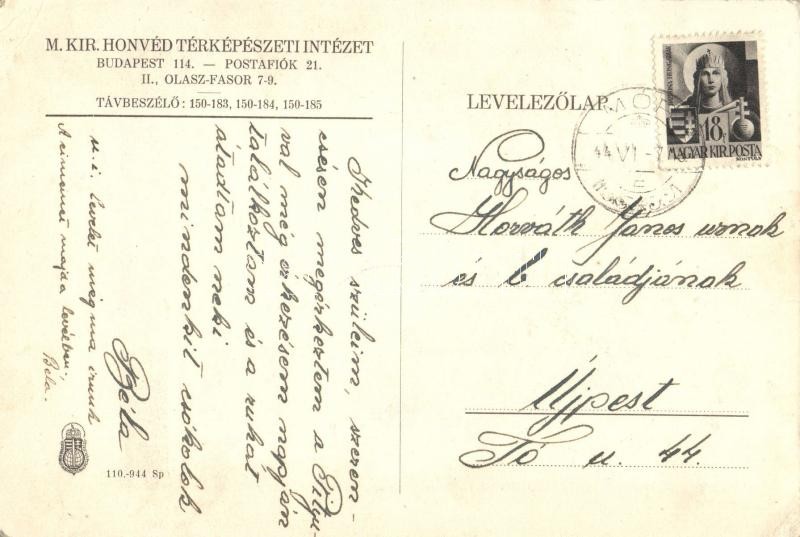 M. KIR. HONVÉD TÉRKÉPÉSZETI INTÉZET
BUDAPEST 114. — POSTAFIÓK 21.
II., OLASZ-FASOR 7-9.
TÁVBESZÉLŐ: 150-183, 150-184, 150-185
Kedves szüleim, szeren-
csésen megérkeztem a Pityu-
val még érkezésem napján
találkoztam és a ruhát
átadtam neki
mindenkit csókolok
Béla
u.i. levelet még ma írunk
A címemet majd a levélben.
Béla.
110.-944 Sp
LEVELEZŐLAP
MÓR
44 VI
E
18f
MAGYAR KIR. POSTA
Nagyságos
Horváth János urnak
és b. családjának
Újpest
Tó u. 44.